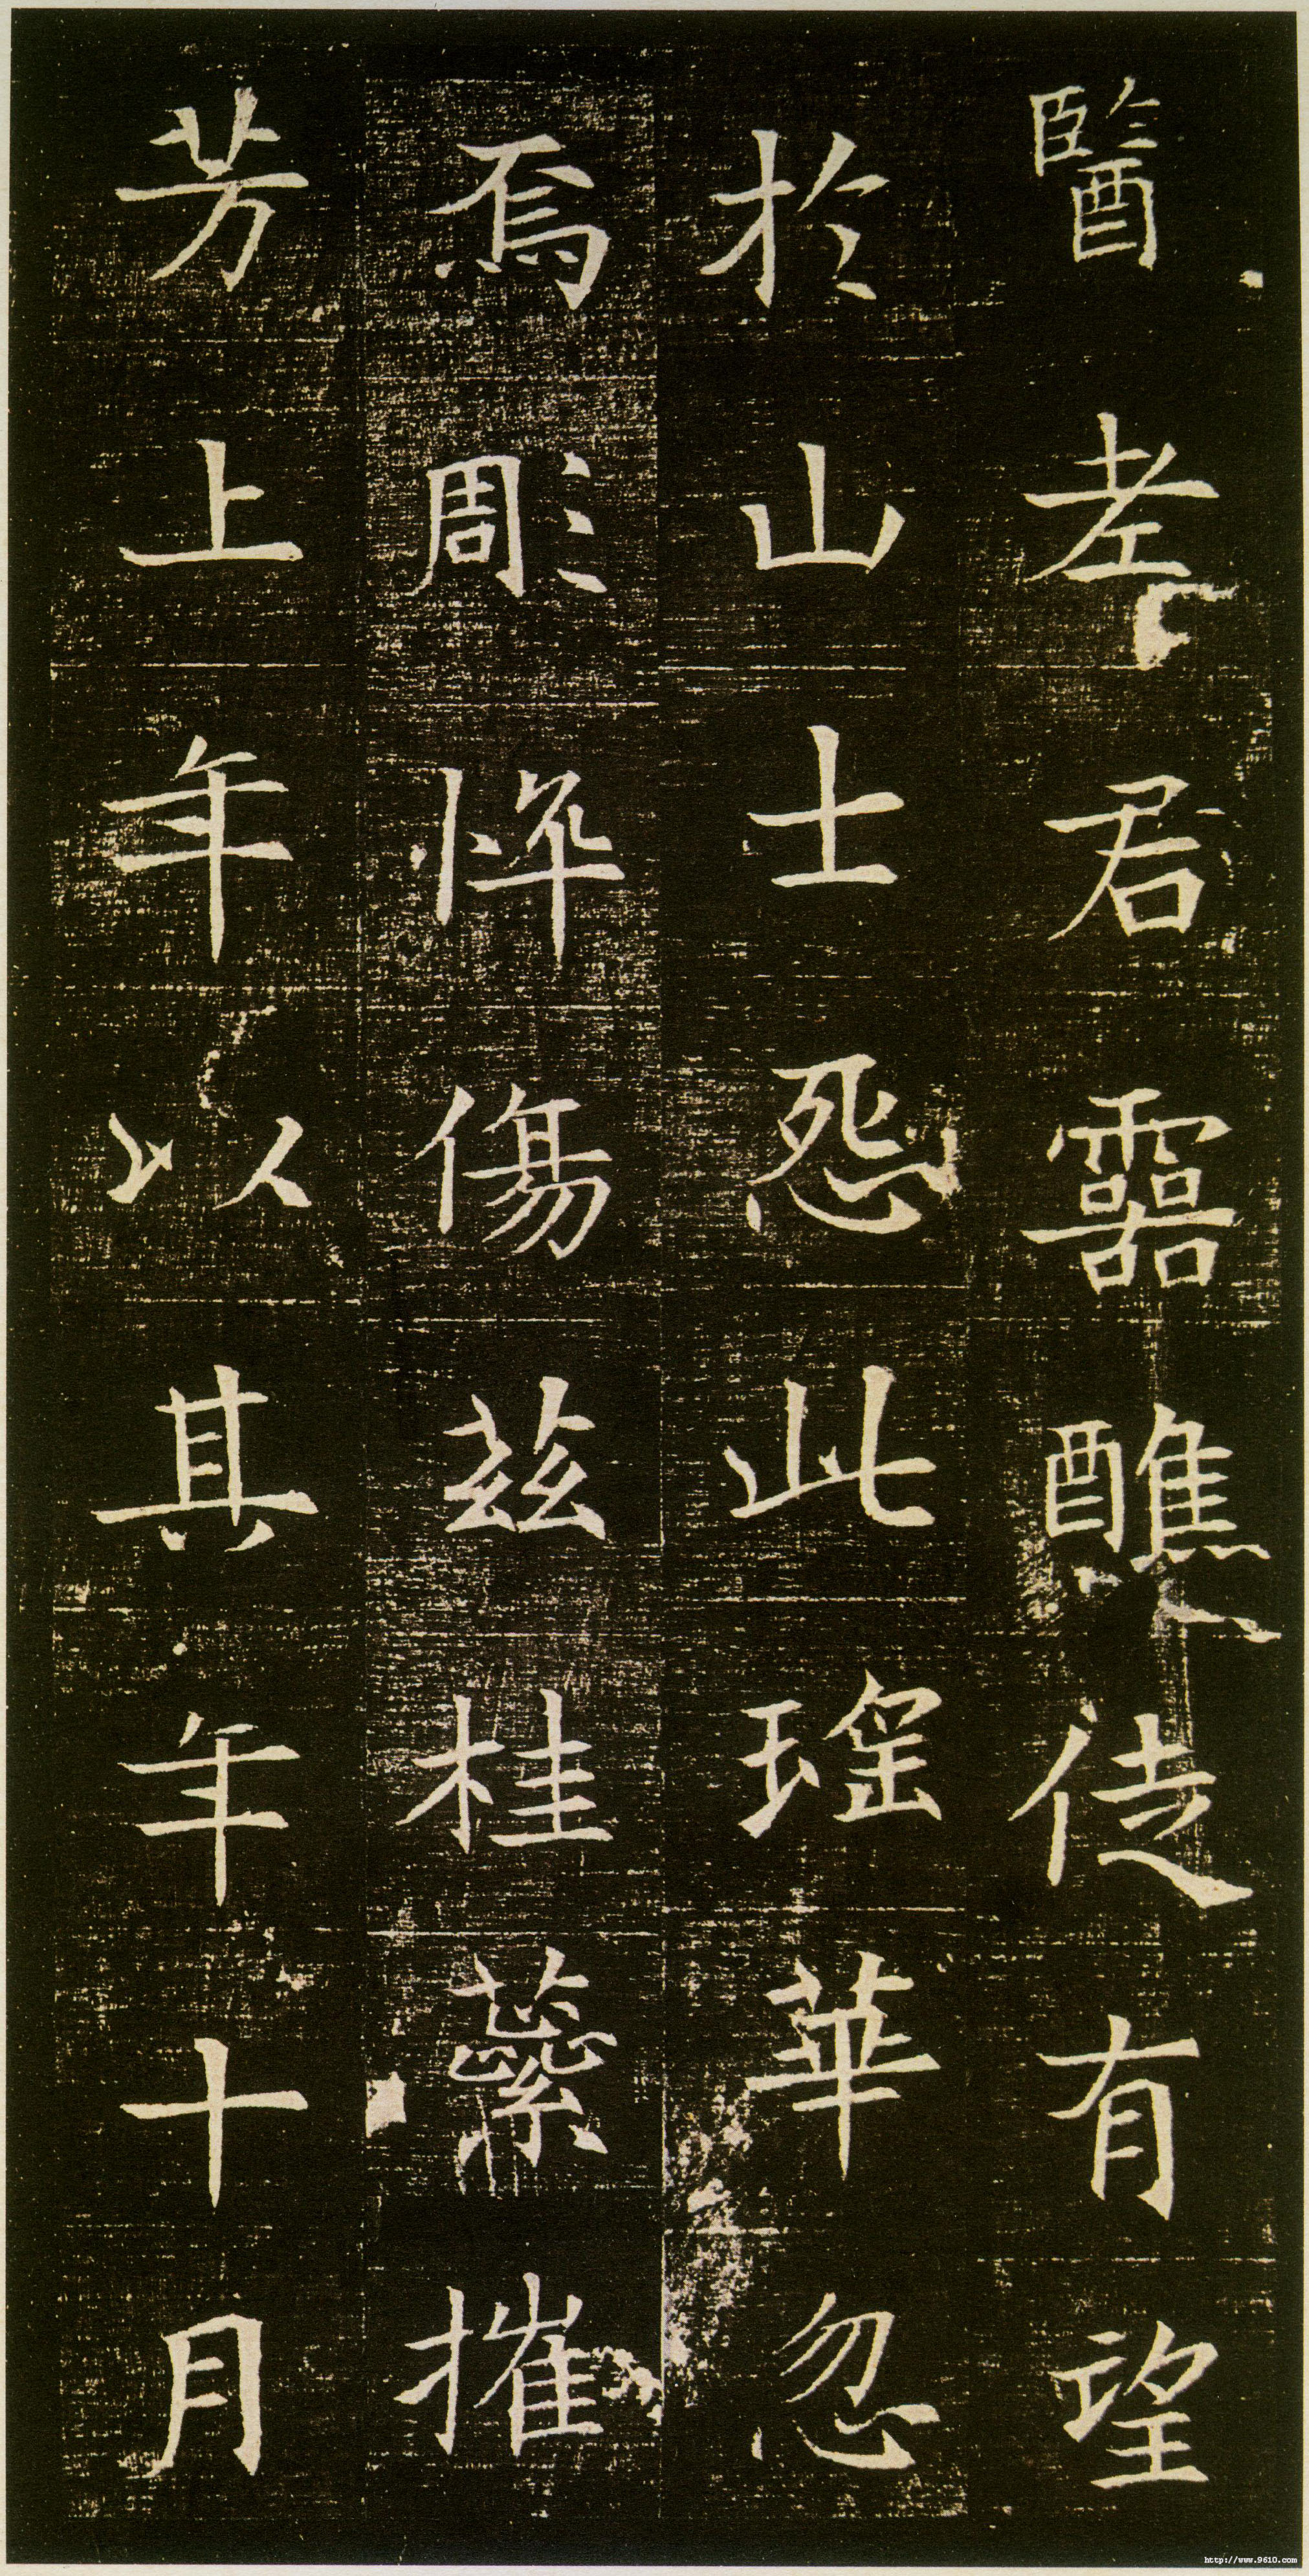 醫老君靈醮徒有望
於山士怨此瑤華忽
焉彫悴傷茲桂蘂摧
芳上年以其年十月
http://www.9610.com